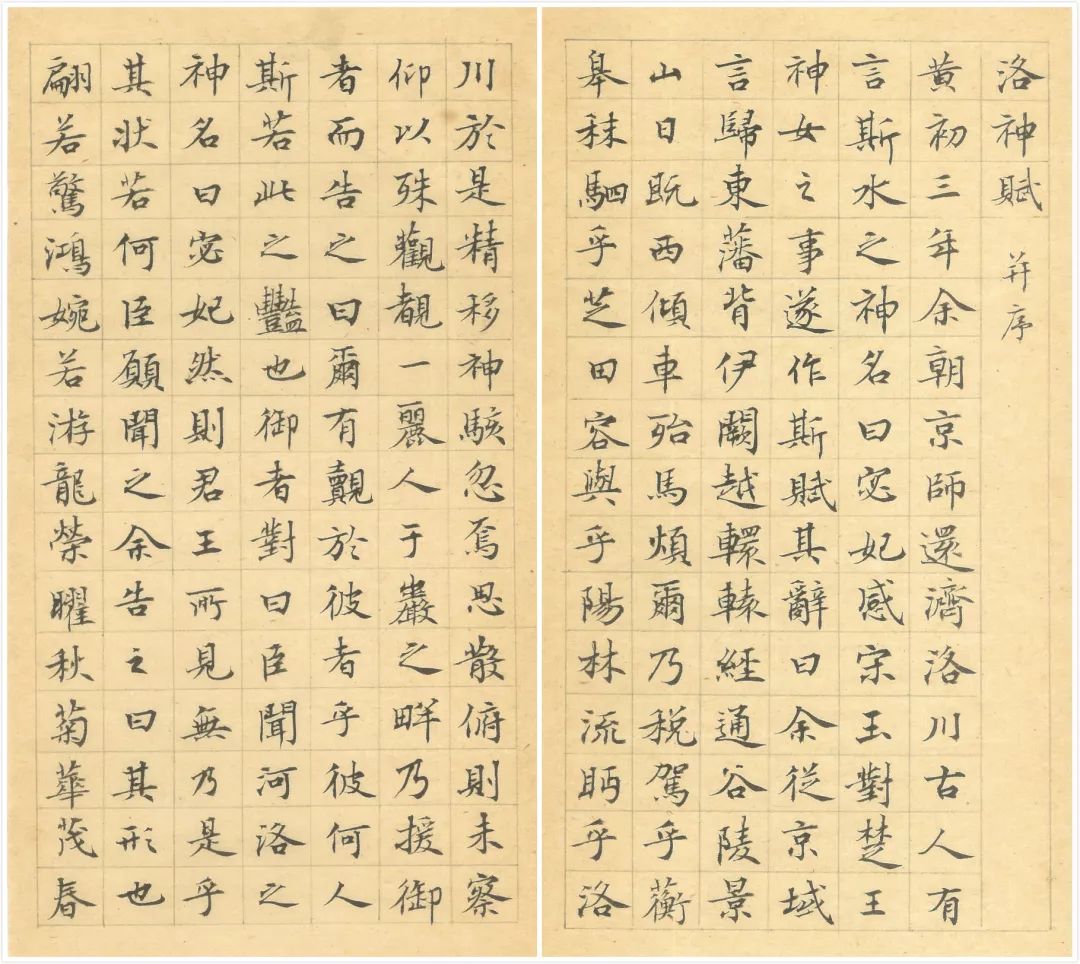 洛神賦 并序
黃初三年余朝京師還濟洛川古人有
言斯水之神名曰宓妃感宋玉對楚王
神女之事遂作斯賦其辭曰余從京域
言歸東藩背伊闕越轘轅經通谷陵景
山日既西傾車殆馬煩爾乃税駕乎蘅
皋秣駟乎芝田容與乎陽林流眄乎洛
川於是精移神駭忽焉思散俯則未察
仰以殊觀覩一麗人于巖之畔乃援御
者而告之曰爾有覿於彼者乎彼何人
斯若此之豔也御者對曰臣聞河洛之
神名曰宓妃然則君王所見無乃是乎
其狀若何臣願聞之余告之曰其形也
翩若驚鴻婉若游龍榮曜秋菊華茂春